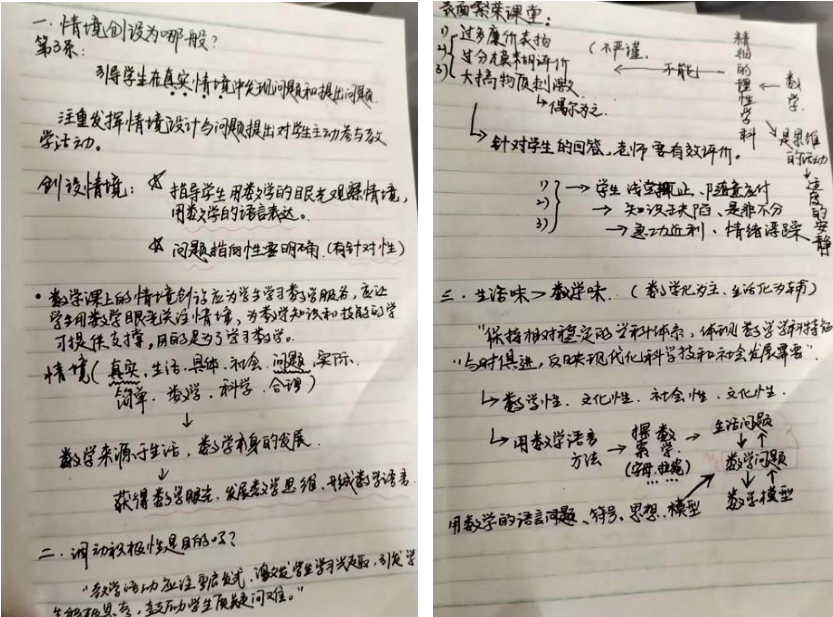 一、情境创设为哪般？
第3条：
引导学生在真实情境中发现问题和提出问题.
注重发挥情境设计与问题提出对学生主动参与教
学活动。
创设情境：☆ 指导学生用数学的眼光观察情境，
用数学的语言表达。
☆ 问题指向性要明确.(有针对性)
• 数学课上的情境创设应为学生学习数学服务，应让
学生用数学眼光关注情境，为数学知识和技能的学
习提供支撑，目的是为了学习数学。
情境(真实、生活、具体、社会、问题、实际、
简单、数学、科学、合理)
↓
数学来源于生活，数学本身的发展.
↓
获得数学眼光、发展数学思维、形成数学语言.
二、调动积极性是目的吗？
"教学活动应注重启发式，激发学生学习兴趣，引发学
生积极思考，鼓励学生质疑问难。"
表面繁荣课堂：
1) 过多廉价表扬
2) 过分模糊评价
3) 大搞物质刺激
↳偶尔为之.
(不严谨.
← 不能
精确的理性学科
← 数学
↘ 是思维
的活动
↓
适度的安静
↳ 针对学生的回答，老师要有效评价。
1) → 学生浅尝辄止、随意应付
2) → 知识缺陷、是非不分
3) → 急功近利、情绪浮躁
三、生活味>数学味. (数学化为主、生活化为辅)
"保持相对稳定的学科体系，体现数学学科特征
"与时俱进，反映现代化科学技术和社会发展需要".
↳ 数学性、文化性、社会性、文化性.
↳ 用数学语言 → 探索 数学 → 生活问题
方法
(字母、...)
数学问题
数学模型
用数学的语言问题、符号、思想、模型